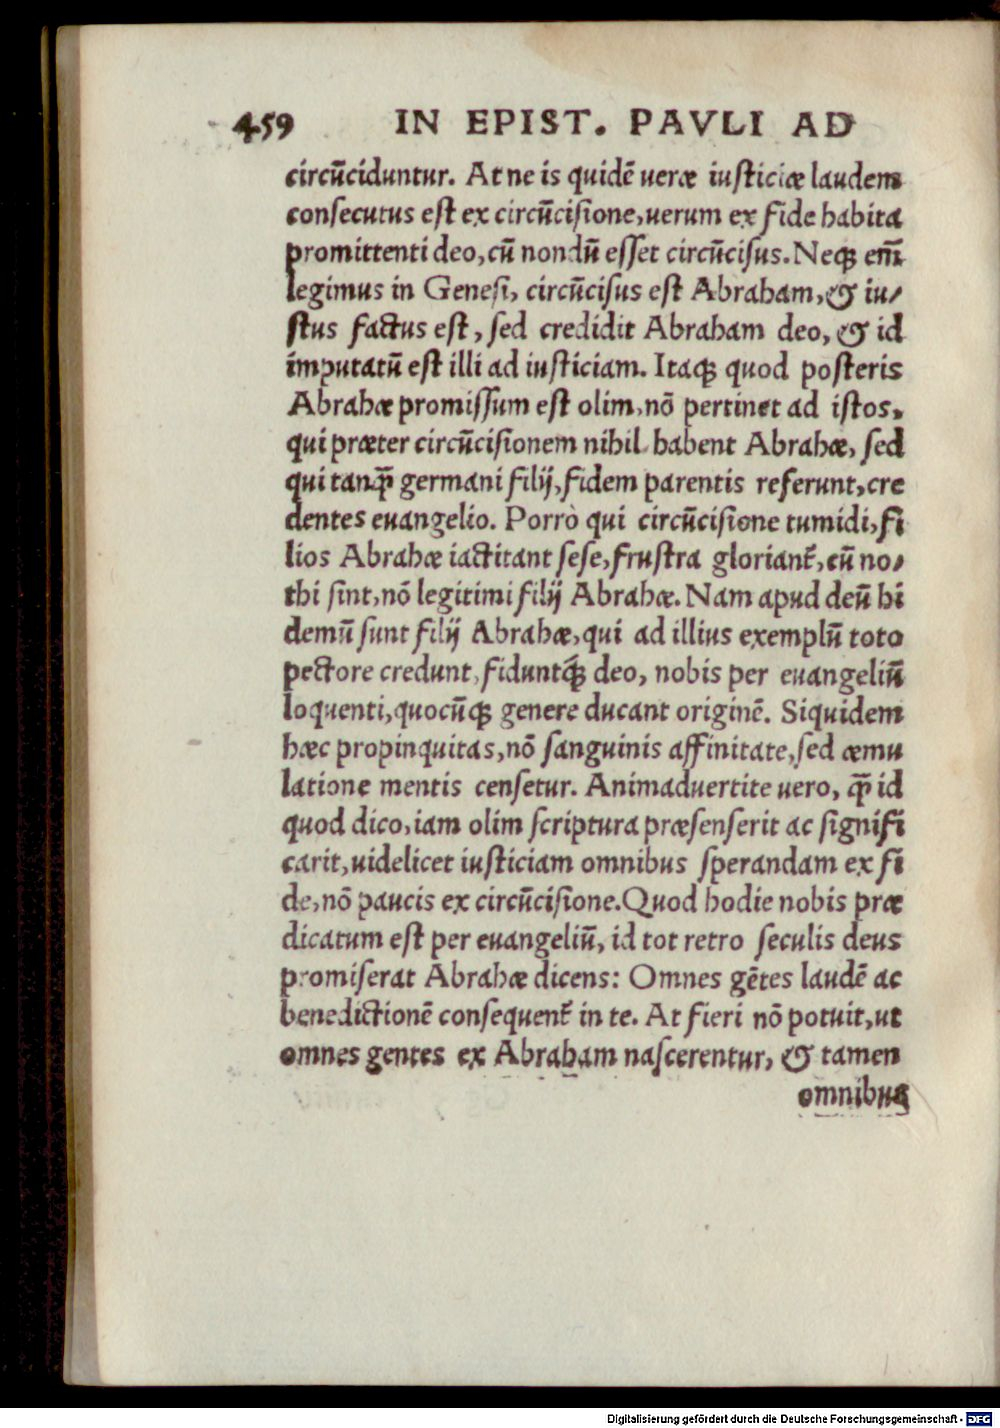 459 IN EPIST. PAVLI AD
circūciduntur. At ne is quidē ueræ iusticiæ laudem
consecutus est ex circūcisione, uerum ex fide habita
promittenti deo, cū nondū esset circūcisus. Neqꝫ em̄
legimus in Genesi, circūcisus est Abraham, & iu/
stus factus est, sed credidit Abraham deo, & id
imputatū est illi ad iusticiam. Itaqꝫ quod posteris
Abrahæ promissum est olim, nō pertinet ad istos,
qui præter circūcisionem nihil habent Abrahæ, sed
qui tanq̄ germani filij, fidem parentis referunt, cre
dentes euangelio. Porrò qui circūcisione tumidi, fi
lios Abrahæ iactitant sese, frustra gloriant᷑, cū no/
thi sint, nō legitimi filij Abrahæ. Nam apud deū hi
demū sunt filij Abrahæ, qui ad illius exemplū toto
pectore credunt, fiduntq́ꝫ deo, nobis per euangeliū
loquenti, quocūqꝫ genere ducant originē. Siquidem
hæc propinquitas, nō sanguinis affinitate, sed æmu
latione mentis censetur. Animaduertite uero, q̄ id
quod dico, iam olim scriptura præsenserit ac signifi
carit, uidelicet iusticiam omnibus sperandam ex fi
de, nō paucis ex circūcisione. Quod hodie nobis præ
dicatum est per euangeliū, id tot retro seculis deus
promiserat Abrahæ dicens: Omnes gētes laudē ac
benedictionē consequent᷑ in te. At fieri nō potuit, ut
omnes gentes ex Abraham nascerentur, & tamen
omnibus
Digitalisierung gefördert durch die Deutsche Forschungsgemeinschaft - DFG